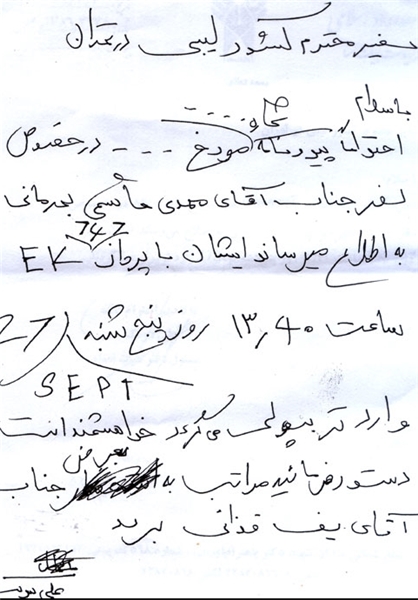 سفیر محترم کشور لیبی در تهران
با سلام
احتراماً پیرو نامه شماره ----
مورخ --- در خصوص
سفر جناب آقای مهدی هاشمی بهرمانی
به اطلاع میرساند ایشان با پرواز EK 747
ساعت ۱۳,۴۰ روز پنج شنبه (27
SEPT
وارد تریپولی می گردد خواهشمند است
دستور فرمائید مراتب به عرض جناب
آقای سیف قذافی برسد